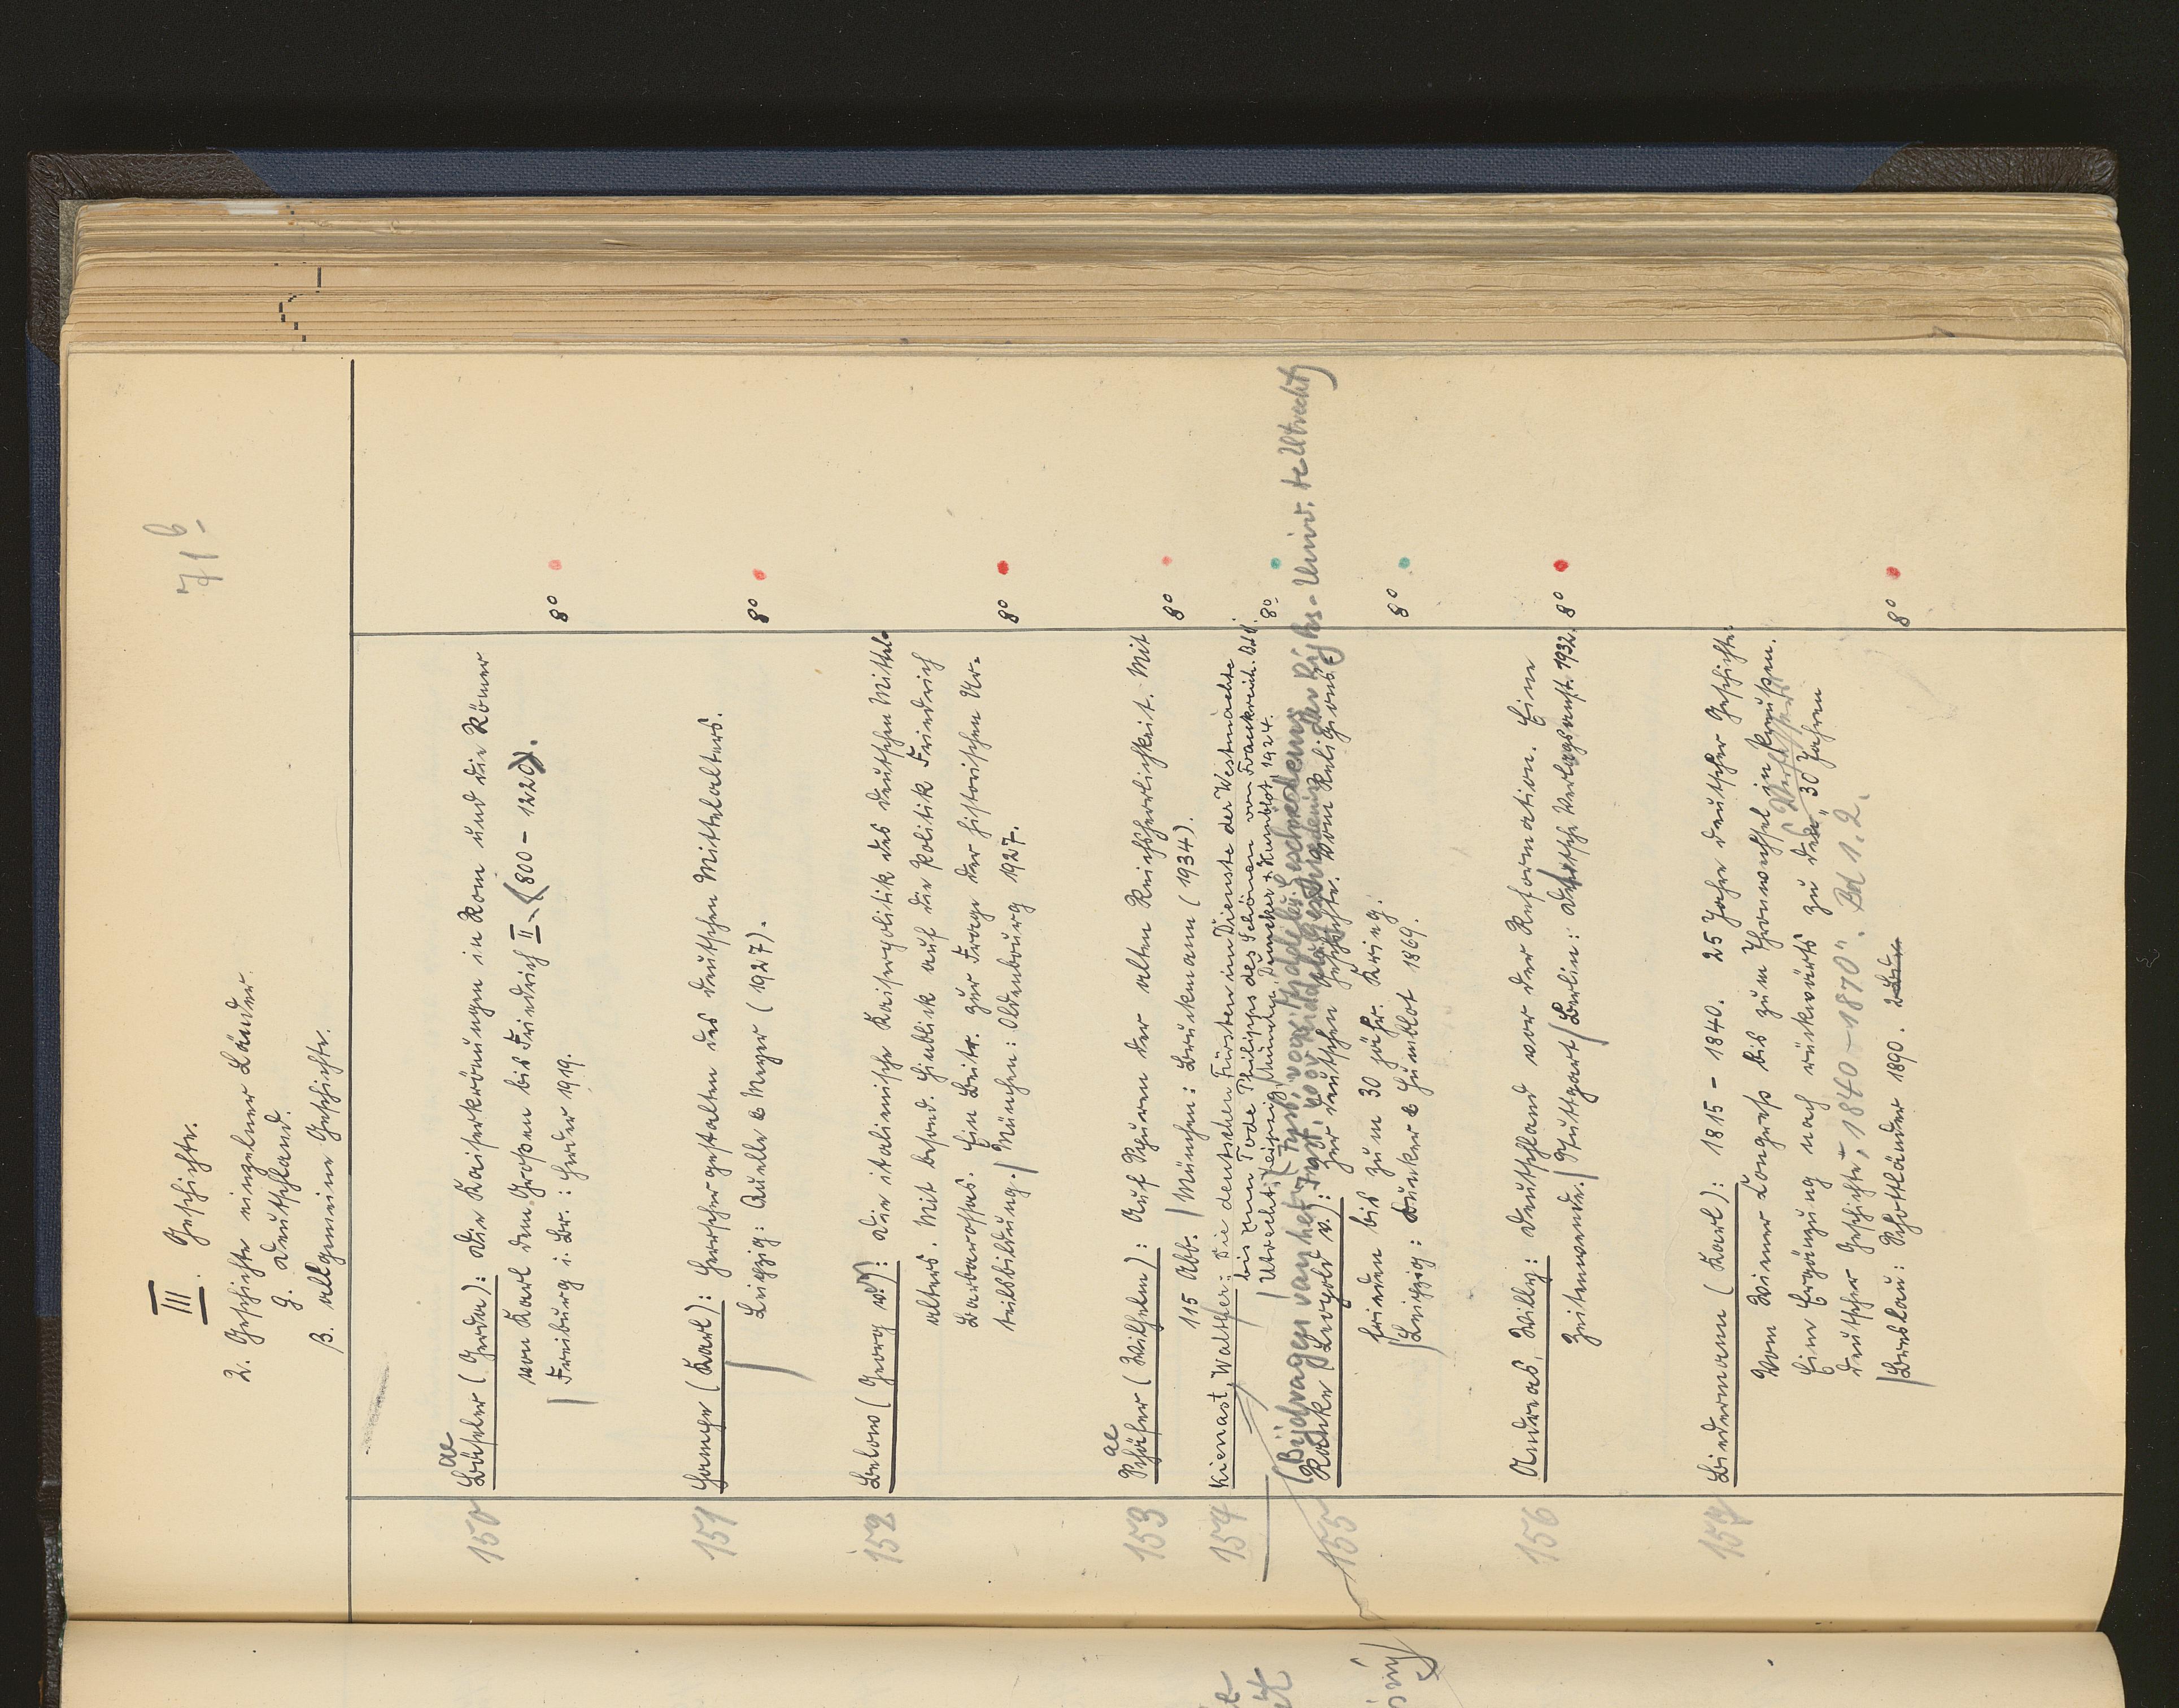 71b
III. Geschichte.
2. Geschichte einzelner Länder
g. Deutschland.
β. Allgemeine Geschichte.
ae
150 Bäseler (Gerda): Die Kaiserkrönungen in Rom und die Römer
von Karl dem Großen bis Friedrich II. (800 - 1220).
Freiburg i. Br.: Herder 1919. 8°
151 Hampe (Karl): Herrschergestalten des deutschen Mittelalters.
Leipzig: Quelle & Meyer (1927). 8°
152 Below (Georg v.): Die italienische Kaiserpolitik des deutschen Mittel-
alters. Mit besond. Hinblick auf die Politik Friedrich
Barbarossas. Ein Beitr. zur Frage der historischen Ur-
teilsbildung. München: Oldenbourg 1927. 8°
ae
153 Schäfer (Wilhelm): Auf Spuren der alten Reichsherrlichkeit. Mit
115 Abb. München: Bruckmann (1934). 8°
154 Kienast, Walther: Die deutschen Fürsten im Dienste der Westmächte
bis zum Tode Philipps des Schönen von Frankreich. Bd 1.
Utrecht, Leipzig, München: Duncker & Humblot, 1924. 8°
(Bijdragen van het Inst. voor middeleeuwsche Geschiedenis der Rijks-Univ. te Utrecht)
155 Ranke (Leopold v.): Zur deutschen Geschichte. Vom Religions-
frieden bis zum 30 jähr. Krieg.
Leipzig: Duncker & Humblot 1869. 8°
156 Andreas, Willy: Deutschland vor der Reformation. Eine
Zeitenwende. Stuttgart, Berlin: Deutsche Verlagsanst. 1932. 8°
157 Biedermann (Karl): 1815 - 1840. 25 Jahre deutscher Geschichte.
Vom Wiener Kongreß bis zum Thronwechsel in Preußen.
Eine Ergänzung nach rückwärts zu des Verfassers „30 Jahren
deutscher Geschichte, 1840-1870". Bd 1.2.
Breslau: Schottländer 1890. 2 Bde 8°